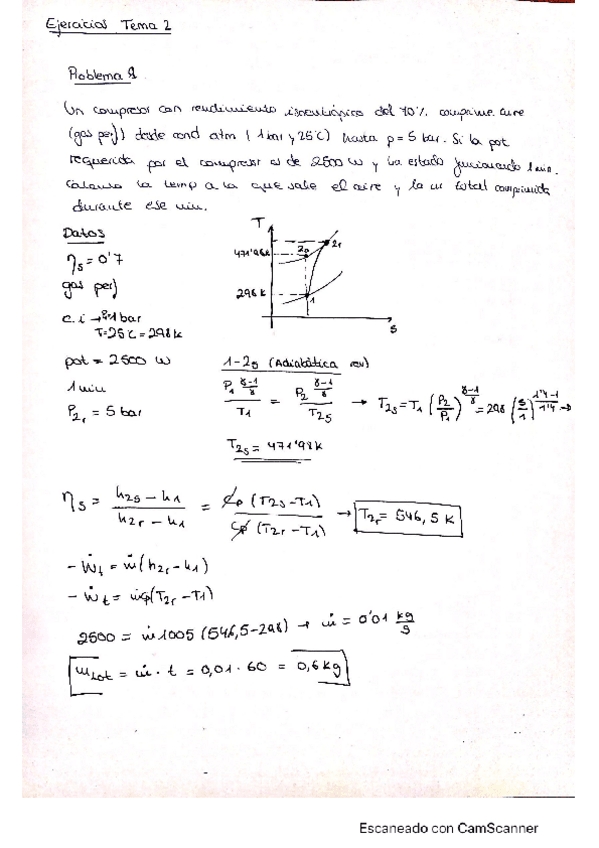 Ejercicios Tema 2
Problema 1
Un compresor con rendimiento isentrópico del 70% comprime aire
(gas perf) desde cond atm (1 bar y 25°C) hasta p = 5 bar. Si la pot
requerida por el compresor es de 2500 W y ha estado funcionando 1 min.
Calcula la temp a la que sale el aire y la m total comprimida
durante ese min.
Datos
ηs = 0'7
gas perf
c.i → P1 bar
T=25°C = 298 K
pot = 2500 W
1 min
P2r = 5 bar
T
471'98K
298 K
2s
2r
1
s
1-2s (Adiabática rev)
P1^(γ-1/γ) / T1 = P2^(γ-1/γ) / T2s → T2s = T1 (P2/P1)^(γ-1/γ) = 298 (5/1)^(1'4-1/1'4) →
T2s = 471'98K
ηs = (h2s - h1) / (h2r - h1) = cp (T2s - T1) / cp (T2r - T1) → T2r = 546,5 K
- Ẇt = ṁ(h2r - h1)
- Ẇt = ṁcp(T2r - T1)
2500 = ṁ 1005 (546,5 - 298) → ṁ = 0'01 kg/s
mtot = ṁ · t = 0,01 · 60 = 0,6 kg
Escaneado con CamScanner